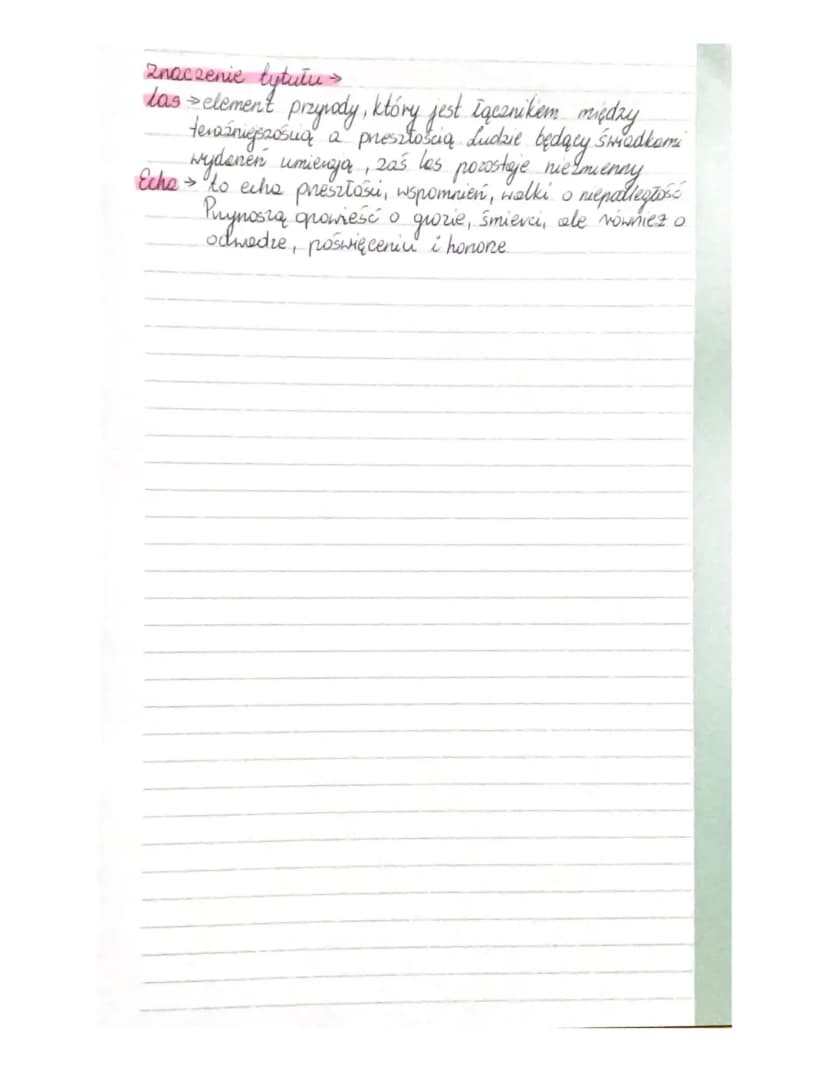 Znaczenie tytułu →
las → element przyrody, który jest łącznikem między
teraźniejszością a przeszłością. Ludzie będący świadkami
wydarzeń umierają, zaś las pozostaje niezmienny
Echa → to echa przeszłości, wspomnień, walki o niepodległość
Przynoszą opowieść o grozie, śmierci, ale również o
odwadze, poświęceniu i honorze.